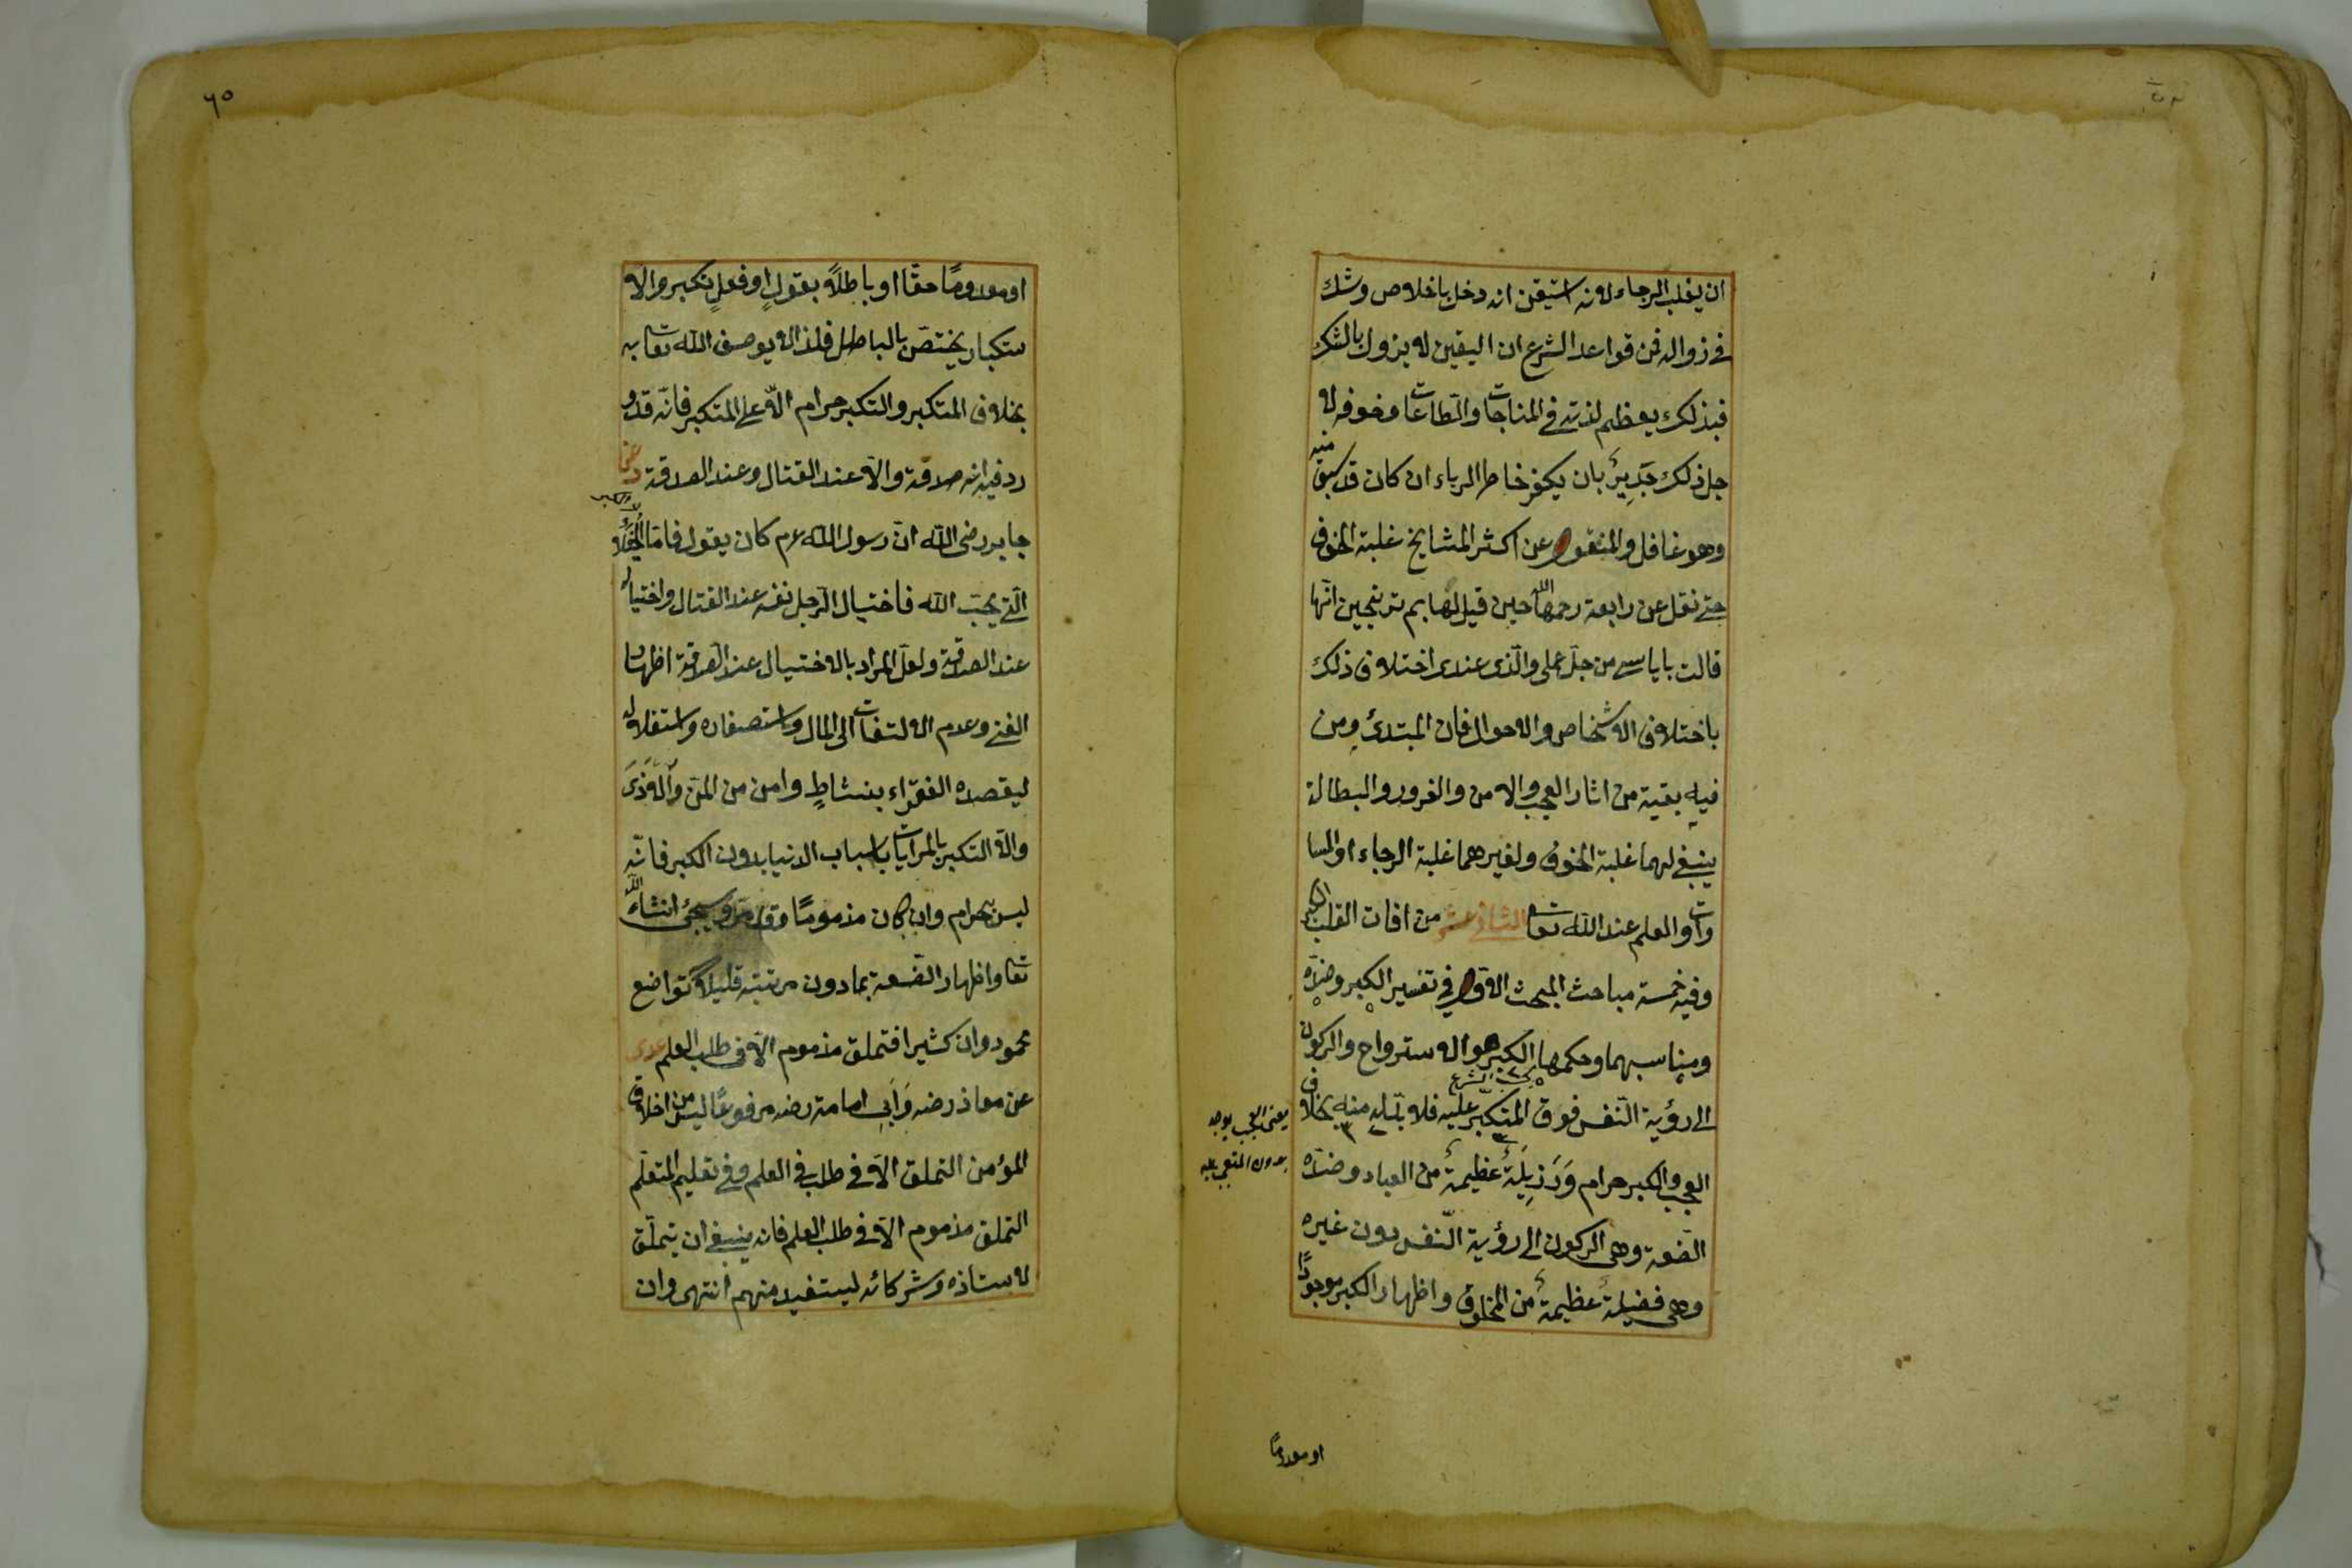 ان يغلب الرجاء لانه استيقن انه دخل باخلاص وشك
فى زواله فمن قواعد الشرع ان اليقين لا يزول بالشك
فبذلك يعظم لذته فى المناجات والطاعات وخوفه لا
جل ذلك جدير بان يكفر خاطر الرياء ان كان قد سبق منه
وهو غافل والمنقول عن اكثر المشايخ غلبة الخوف
حتى نقل عن رابعة رحمها الله حين قيل لها بم ترتجين انها
قالت باياسى من جل عملى والذى عندى اختلاف ذلك
باختلاف الاشخاص والاحوال فان المبتدئ ومن
فيه بقية من اثار العجب والامن والغرور والبطالة
ينبغى لهما غلبة الخوف ولغيرهما غلبة الرجاء او المسا
وات والعلم عند الله تعا الثانى عشر من افات القلب الكبر
وفيه خمسة مباحث المبحث الاول فى تفسير الكبر وضده
ومناسبهما وحكمهما الكبر هو الاسترواح والركون
الى رؤية النفس فوق المتكبر عليه فلا بد له منه بخلاف
يعنى العجب يوجد
بدون المتعجب عليه
العجب والكبر حرام ورذيلة عظيمة من العباد وضده
الضعة وهى الركون الى رؤية النفس دون غيره
وهى فضيلة عظيمة من المخلوق واظهار الكبر موجودا
او معدوما
٦٠
او معدومًا حقًا او باطلاً بقولٍ او فعلٍ تكبر والا
ستكبار يختصّ بالباطل فلذا لا يوصف الله تعا به
بخلاف المتكبر والتكبر حرام الا على المتكبر فانه قد و
رد فيه انه صدقة والا عند القتال وعند الصدقة د عن
جابر رضى الله ان رسول الله عم كان يقول فاما الخيلاء
التى يحبّ الله فاختيال الرجل نفسه عند القتال واختياله
عند الصدقة ولعلّ المراد بالاختيال عند الصدقة اظهار
الغنى وعدم الالتفات الى المال واستصغاره واستقلاله
ليقصده الفقراء بنشاطٍ وامن من المنّ والاذى
والا التكبر بالمرايات باسباب الدنيا بدون الكبر فانّه
ليس بحرام وان كان مذمومًا وقد مرّ وسيجئ انشاء الله
تعا واظهار الضعة بما دون مرتبته قليلا تواضع
محمود وان كثيرا فتملق مذموم الا فى طلب العلم عدى
عن معاذ رضه وابى امامة رضه مرفوعًا ليس من اخلاق
المؤمن التملق الا فى طلب العلم وفى تعليم المتعلم
التملق مذموم الا فى طلب العلم فانه ينبغى ان يتملّق
لاستاذه وشركائه ليستفيد منهم انتهى وان